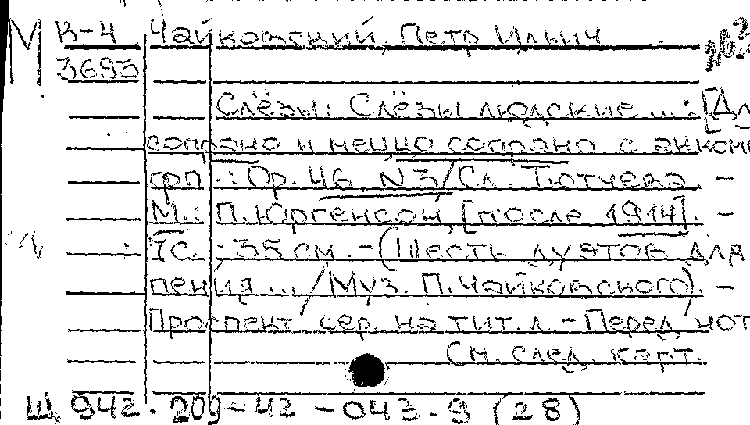 М В-4 Чайковский, Петр Ильич
3693
Слёзы: Слёзы людские ... : [Дл
сопрано и меццо сопрано с акком
фп.: Ор. 46, N3 / Сл. Тютчева. –
М.: П. Юргенсон, [после 1914]. –
7с.; 35 см. – (Шесть дуэтов для
пения ... / Муз. П. Чайковского). –
Проспект сер. на тит. л. – Перед нот
См. след. карт.
Щ 942. 209-42 -043.9 (28)